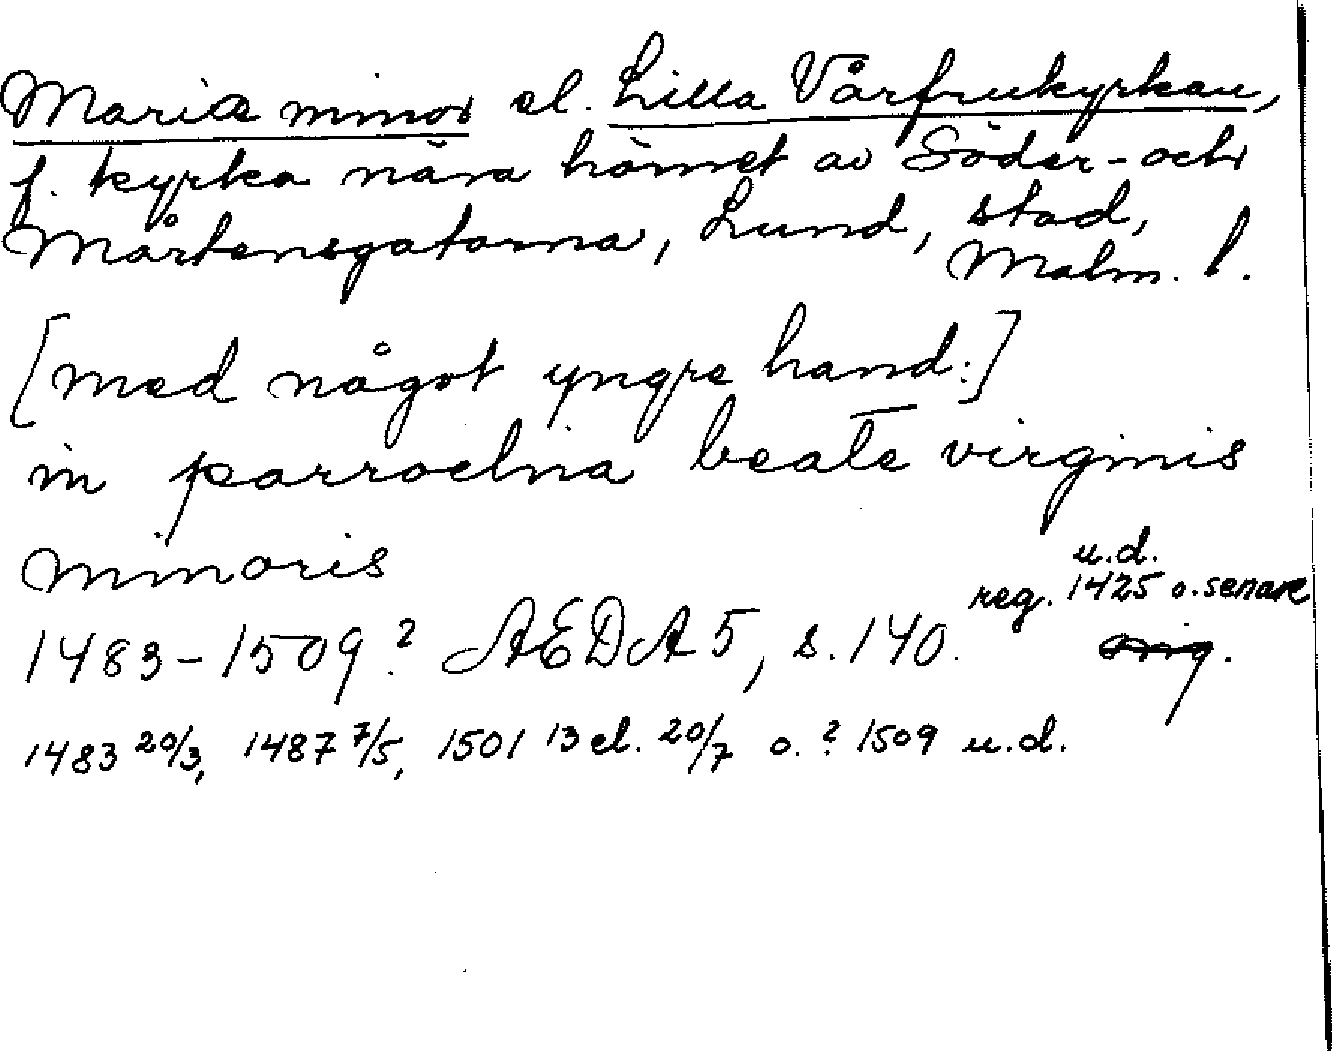 Maria minor el. Lilla Vårfrukyrkan,
f. kyrka nära hörnet av Söder- och
Mårtensgatorna, Lund, stad,
Malm. l.
[med något yngre hand:]
in parrochia beate virginis
minoris
u.d.
reg. 1425 o. senare
1483-1509? AEDA 5, s. 140. orig.
1483 20/3, 1487 7/5, 1501 13 el. 20/7 o. ? 1509 u.d.